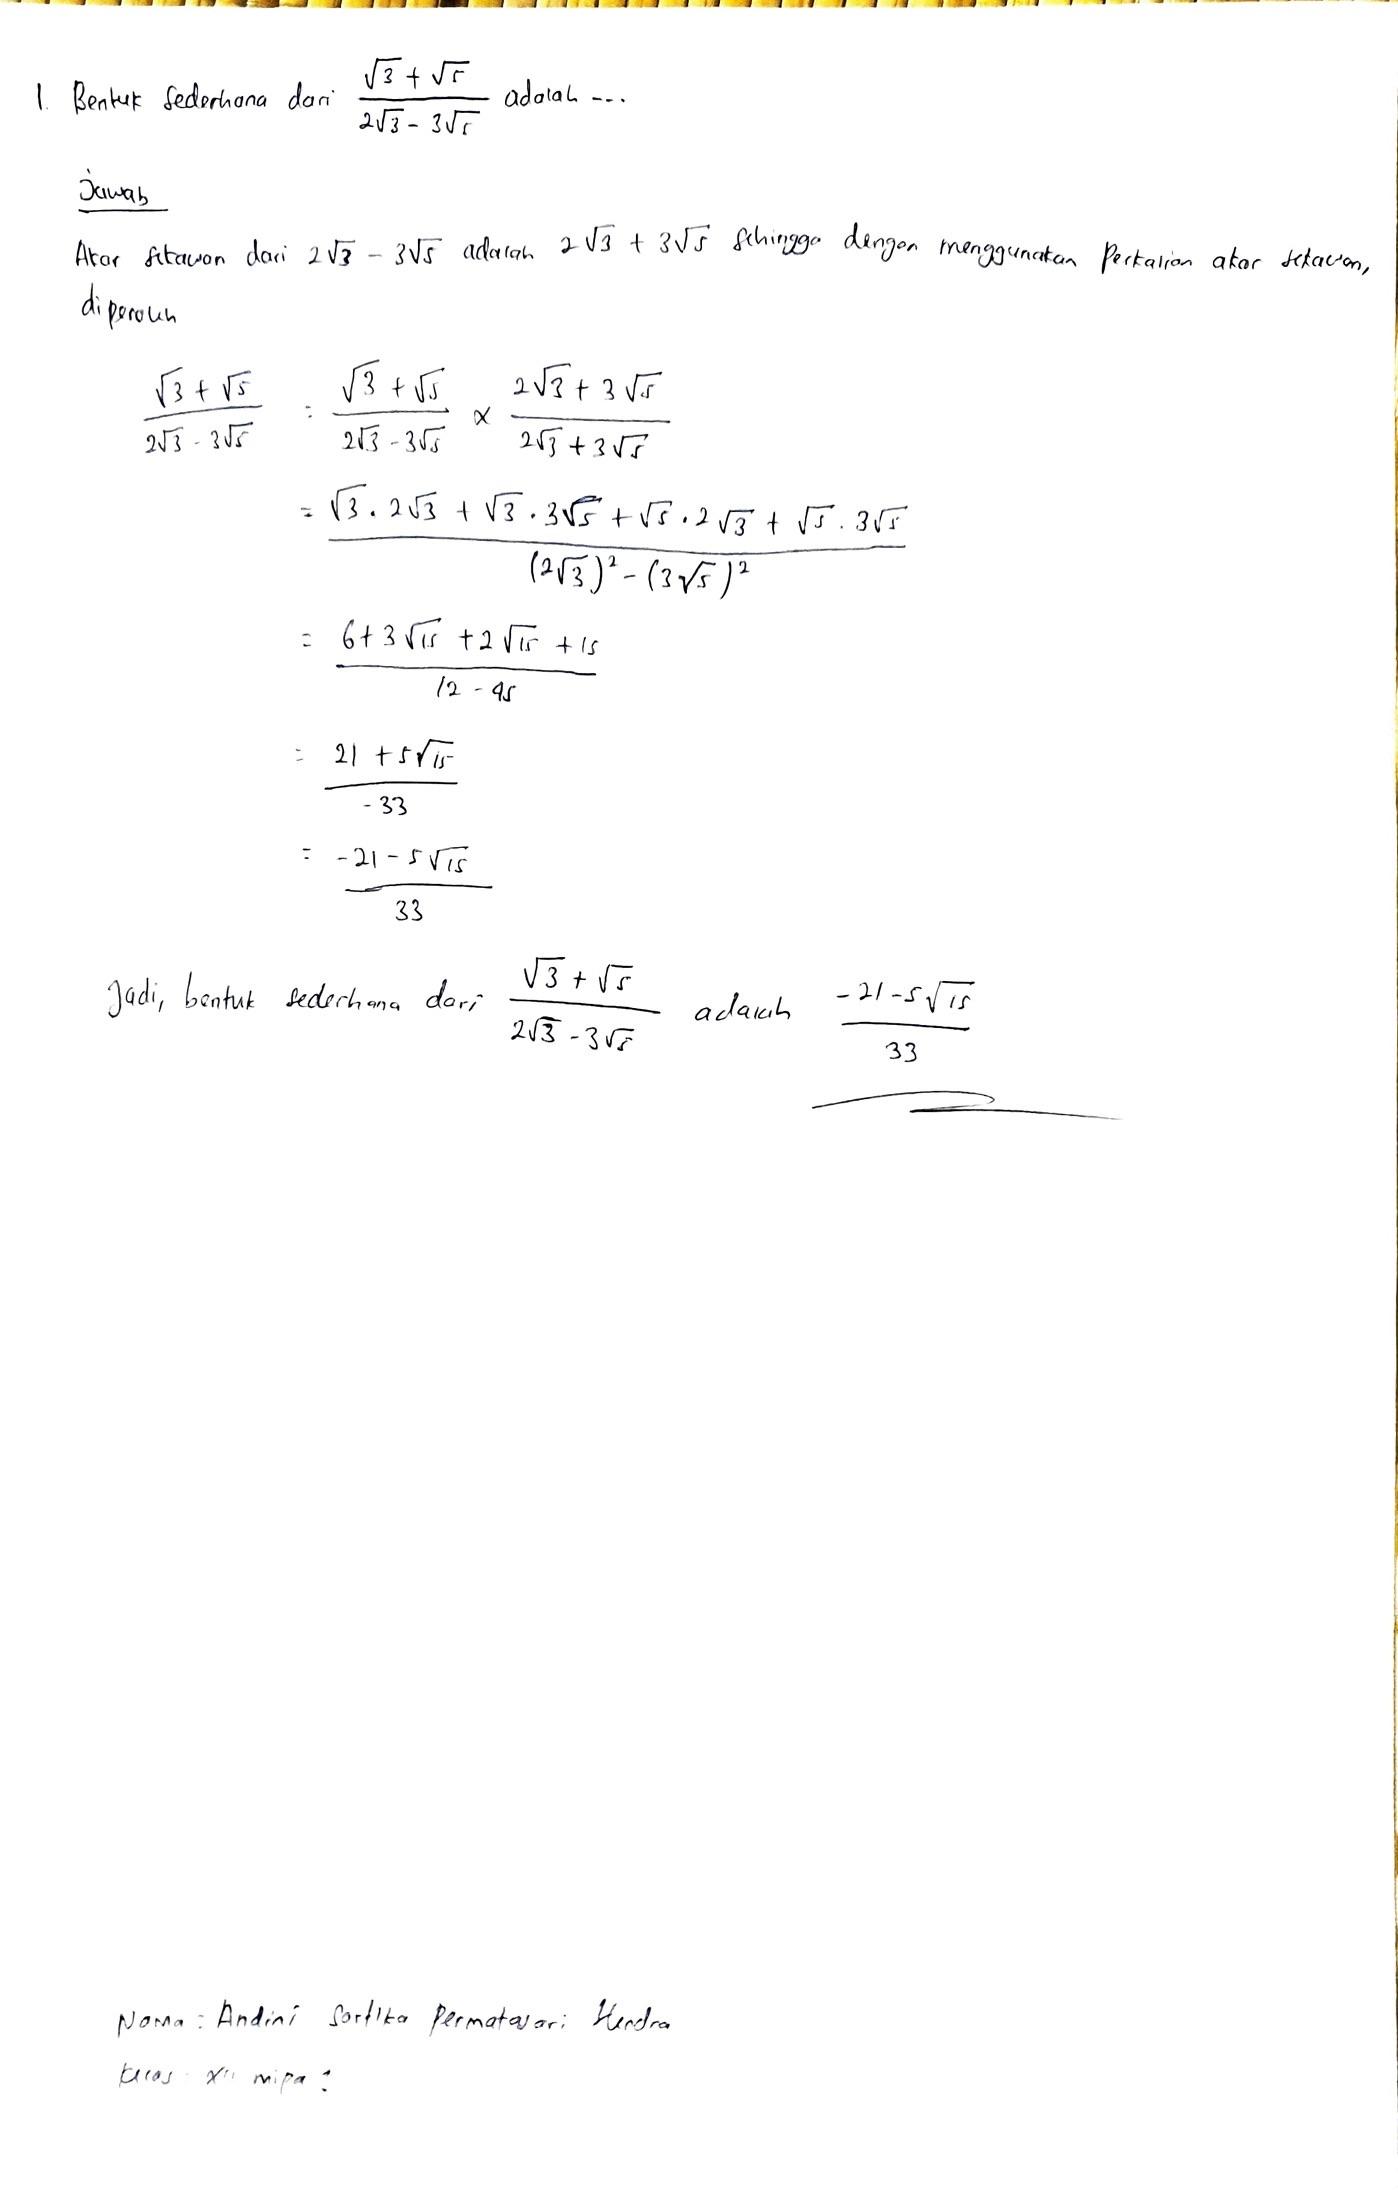 1. Bentuk sederhana dari (√3 + √5)/(2√3 - 3√5) adalah ....
Jawab
Akar sekawan dari 2√3 - 3√5 adalah 2√3 + 3√5 sehingga dengan menggunakan Perkalian akar sekawan,
diperoleh
(√3 + √5)/(2√3 - 3√5) = (√3 + √5)/(2√3 - 3√5) × (2√3 + 3√5)/(2√3 + 3√5)
= (√3 . 2√3 + √3 . 3√5 + √5 . 2√3 + √5 . 3√5)/((2√3)² - (3√5)²)
= (6 + 3√15 + 2√15 + 15)/(12 - 45)
= (21 + 5√15)/(-33)
= (-21 - 5√15)/33
Jadi, bentuk sederhana dari (√3 + √5)/(2√3 - 3√5) adalah (-21 - 5√15)/33
Nama : Andini Sartika Permatasari Hendra
Kelas : mipa